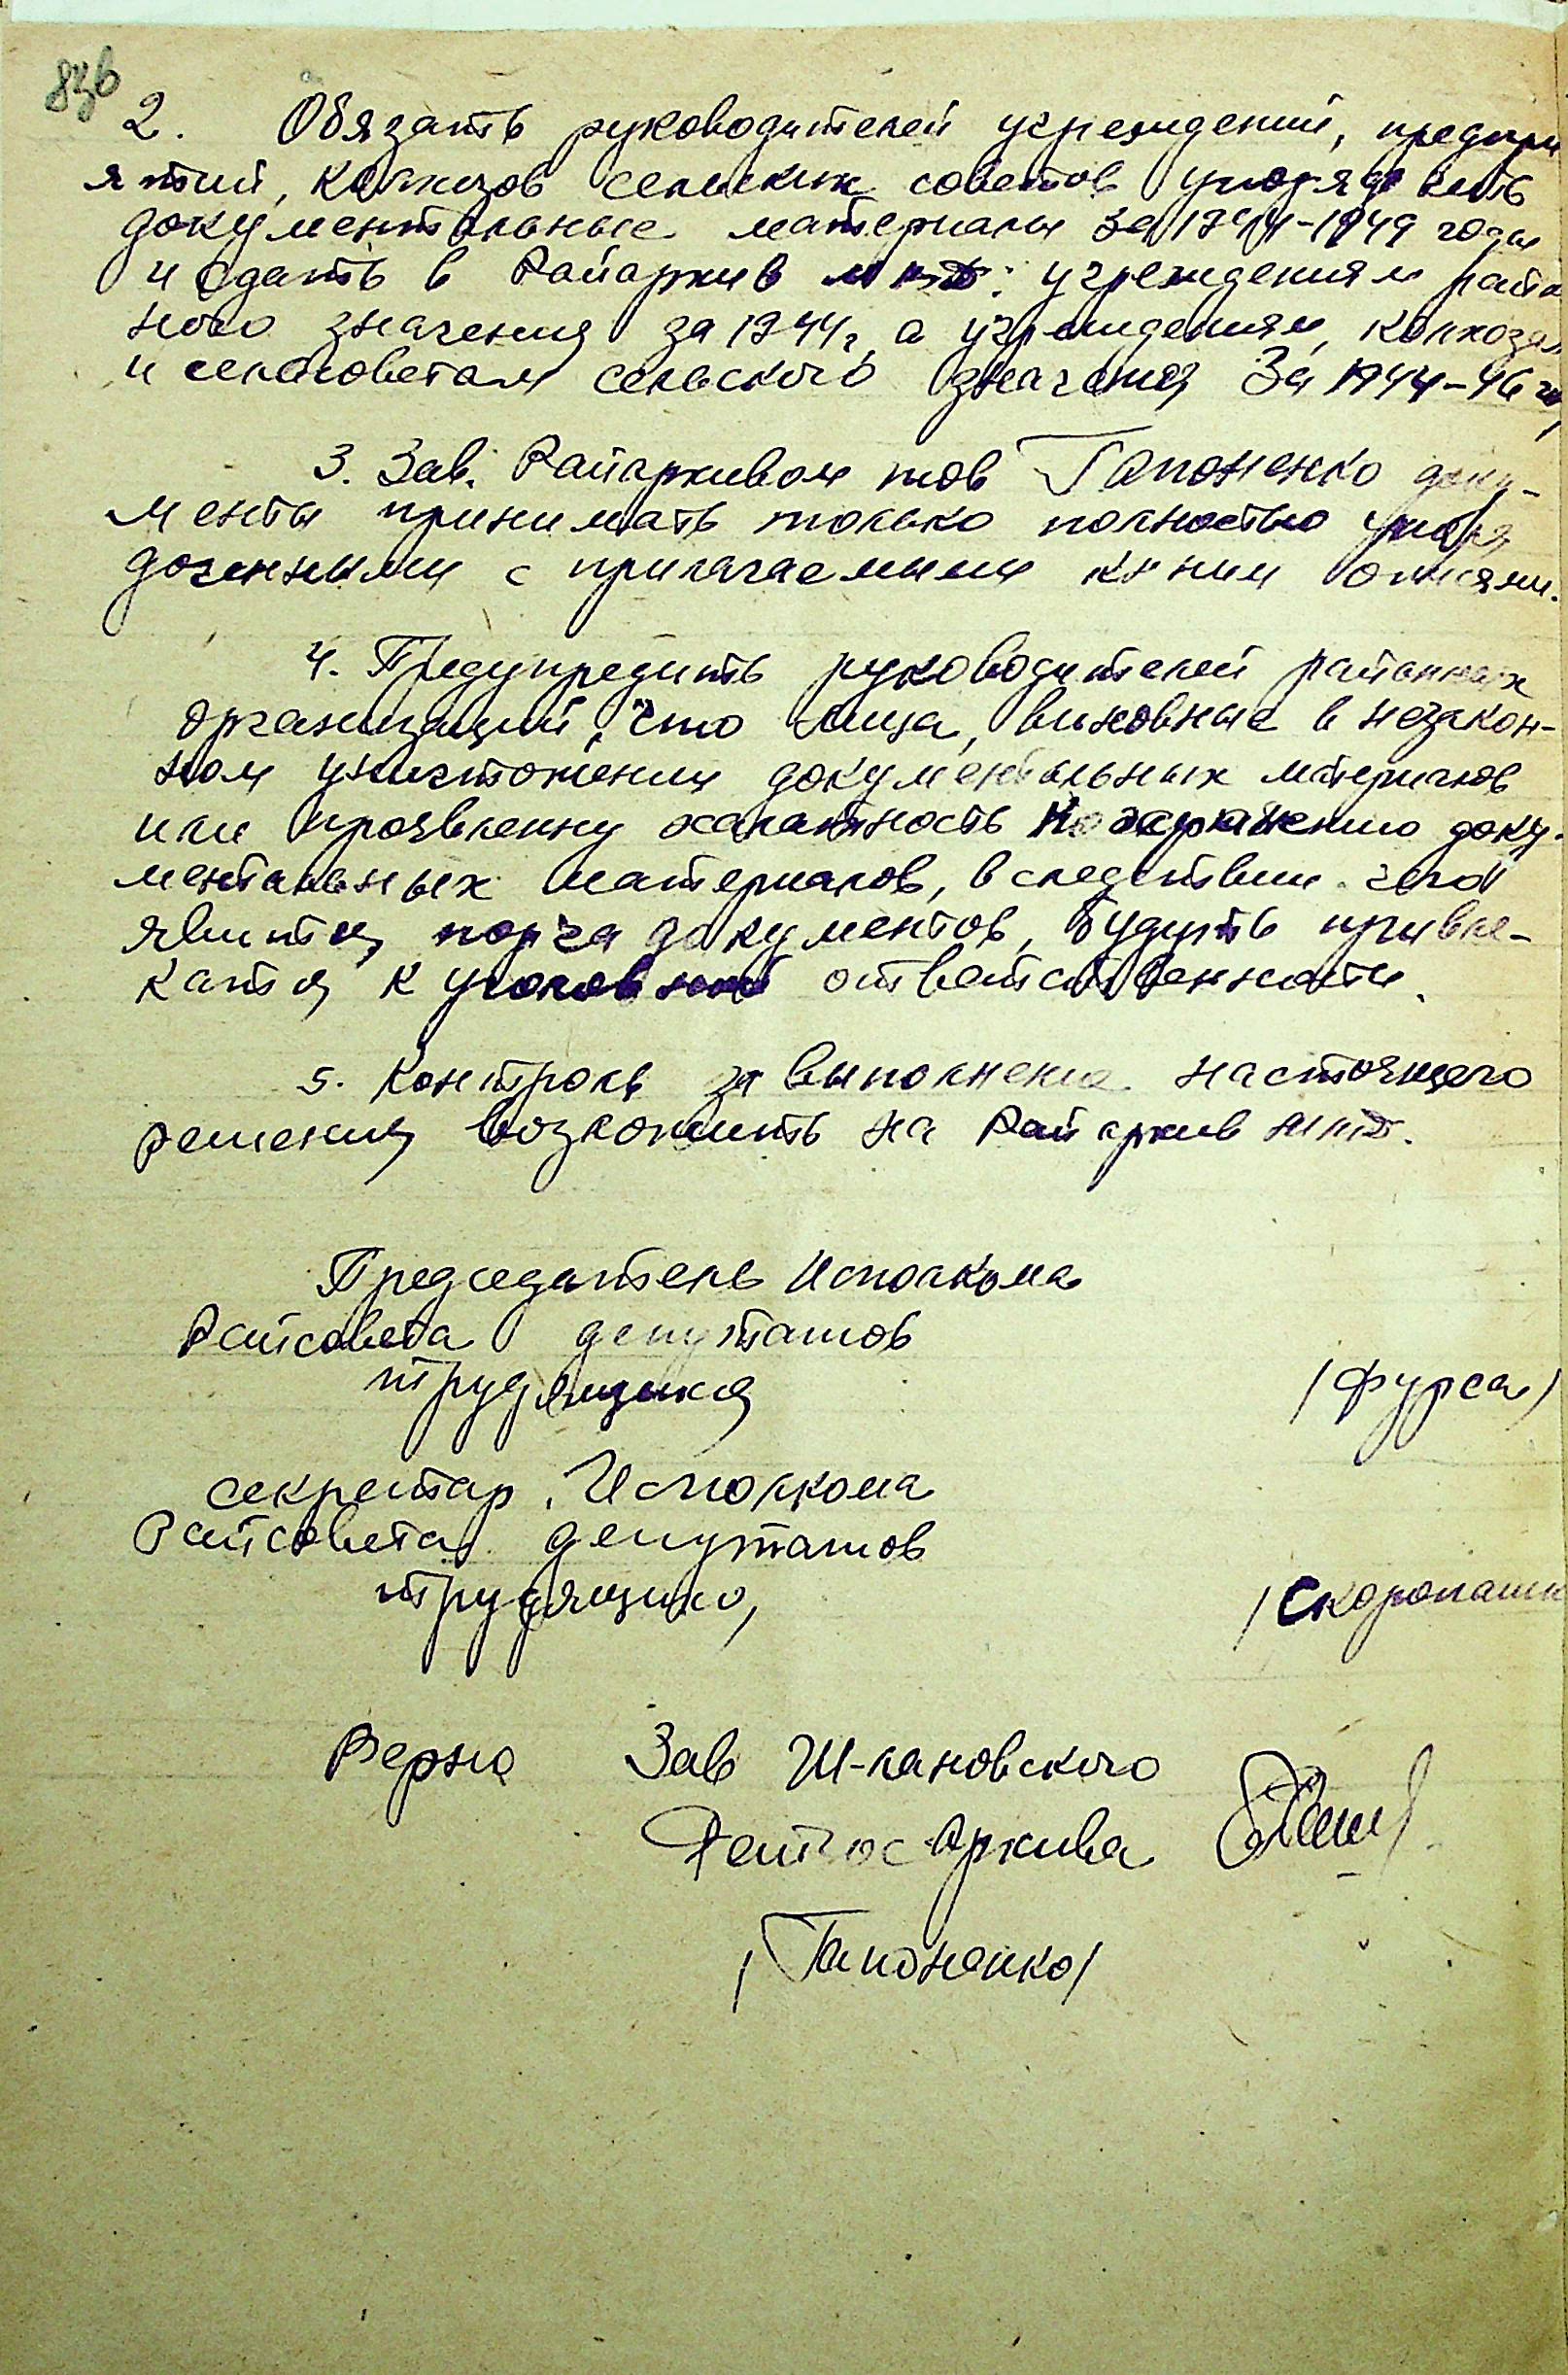 2. Обязать руководителей учреждений, предпри
ятий, колхозов сельских советов упорядочить
документальные материалы за 1944-1949 годы
и сдать в Райархив учреждениям район
ного значения за 1944г, а учреждениям, колхозам
и сельсоветам сельского значения За 1944-46 гг,
3. Зав. Райархивом тов Гапоненко доку-
менты принимать только полностью упоря
доченными с прилагаемыми к ним описями.
4. Предупредить руководителей районных
организаций, что лица, виновные в незакон-
ном уничтожении документальных материалов
или проявленну халатность доку-
ментальных материалов, в следствии чего
явится порча документов, будуть привле-
катся к уголовной ответственности.
5. Контроль за выполнение настоящего
решения возложить на Райархив
Председатель Исполкома
Райсовета депутатов
трудящихся /Фурса/
секретар Исполкома
Райсовета депутатов
трудящихся /Скоропашк
Верно Зав Ш-лановского
Райгосархива
/Гапоненко/